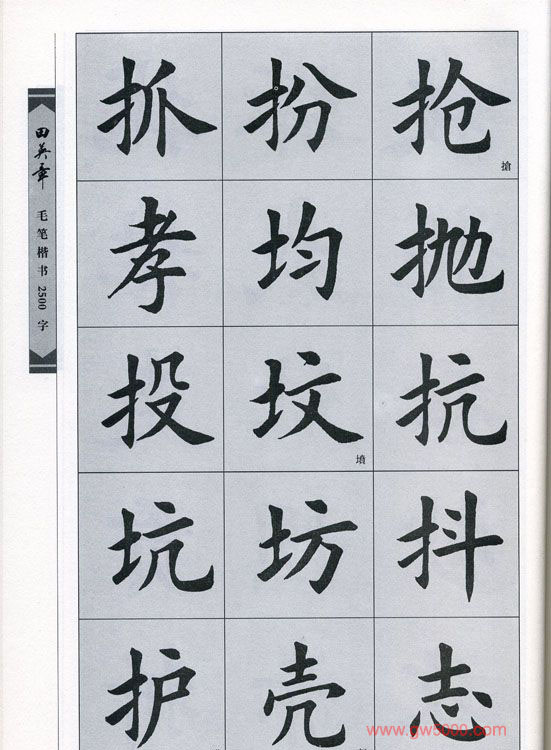 田英章 毛笔楷书 2500 字
抓 扮 抢
搶
孝 均 抛
投 坟 抗
墳
坑 坊 抖
护 壳 志
www.gw5000.com